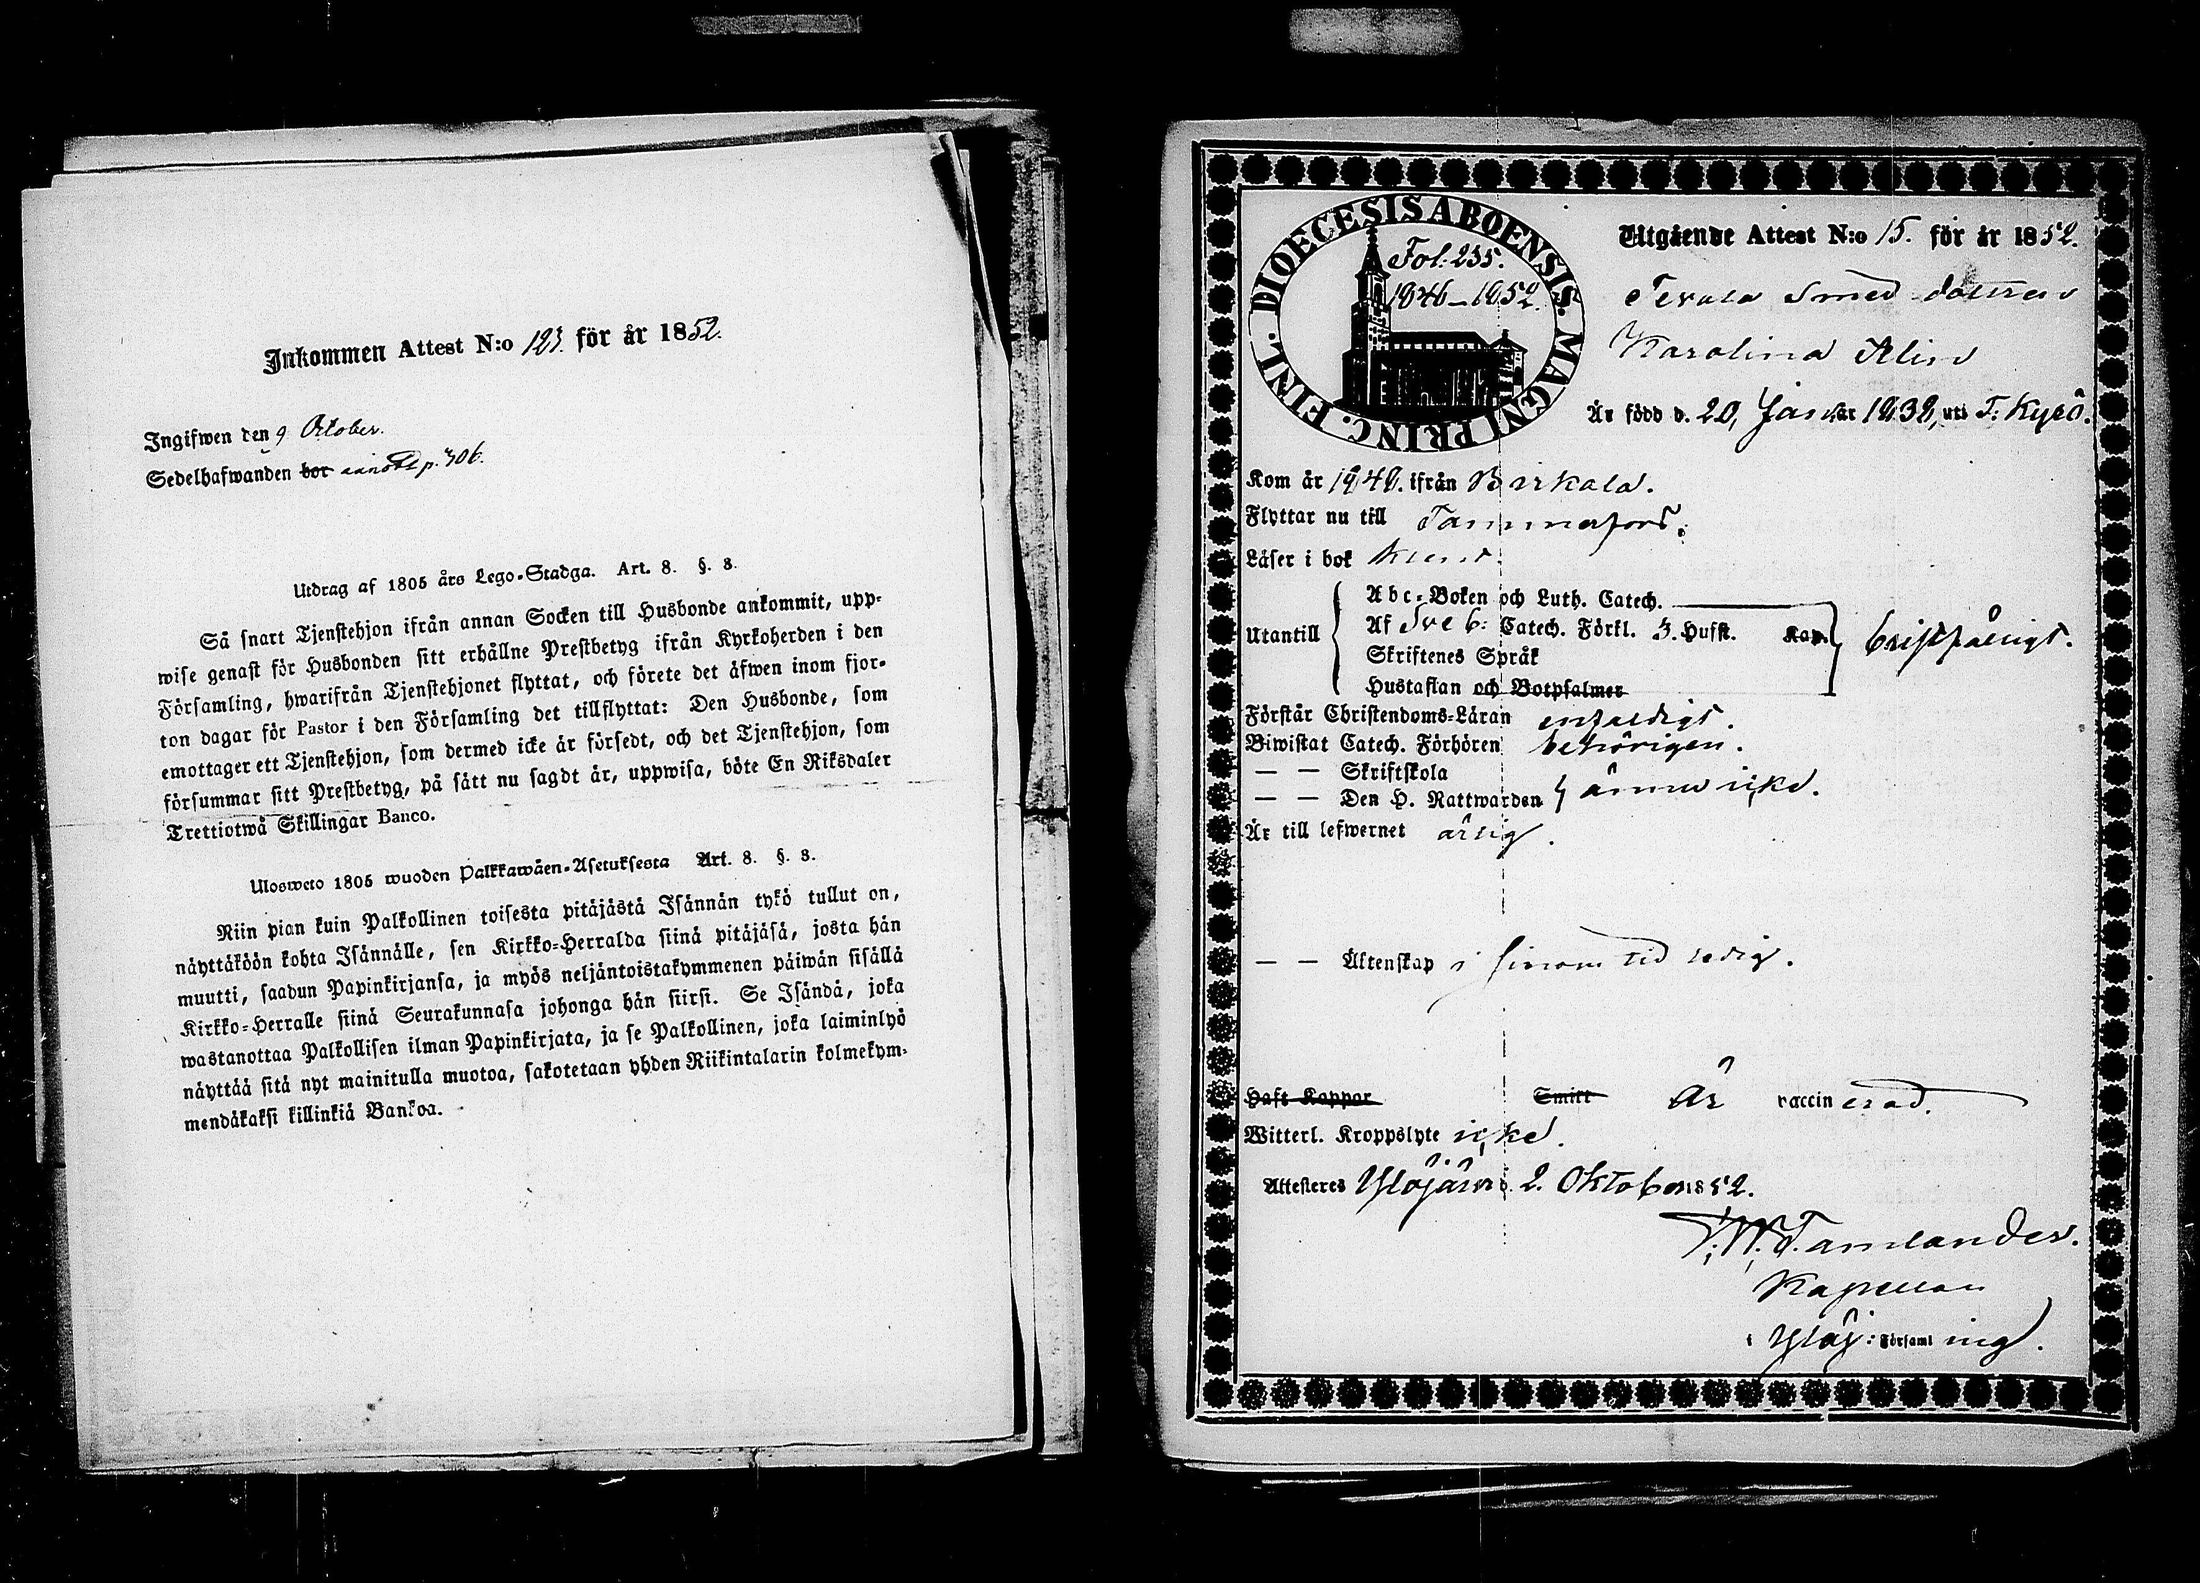 Inkommen Attest N:o 123. för år 1852.
Ingifwen den 9 October.
Sedelhafwanden bor p. 306.
Utdrag af 1805 års Lego-Stadga. Art. 8. §. 8.
Så snart Tjenstehjon ifrån annan Socken till Husbonde ankommit, upp-
wise genast för Husbonden sitt erhållne Prestbetyg ifrån Kyrkoherden i den
Församling, hwarifrån Tjenstehjonet flyttat, och förete det äfwen inom fjor-
ton dagar för Pastor i den Församling det tillflyttat: Den Husbonde, som
emottager ett Tjenstehjon, som dermed icke är försedt, och det Tjenstehjon, som
försummar sitt Prestbetyg, på sätt nu sagdt är, uppwisa, böte En Riksdaler
Trettiotwå Skillingar Banco.
Ulosweto 1805 wuoden Palkkawäen-Asetuksesta Art. 8. §. 8.
Niin pian kuin Palkollinen toisesta pitäjästä Isännän tykö tullut on,
näyttäköön kohta Isännälle, sen Kirkko-Herralda siinä pitäjäsä, josta hän
muutti, saadun Papinkirjansa, ja myös neljäntoistakymmenen päiwän sisällä
Kirkko-Herralle siinä Seurakunnasa johonga hän siirsi. Se Isändä, joka
wastanottaa Palkollisen ilman Papinkirjata, ja se Palkollinen, joka laiminlyö
näyttää sitä nyt mainitulla muotoa, sakotetaan yhden Riikintalarin kolmekym-
mendäkaksi killinkiä Bankoa.
DIOECESIS ABOENSIS. MAGNI PRINC. FINL.
Fol: 235.
1846-1852.
Utgående Attest N:o 15. för år 1852.
Smed dottren
Karolina
Är född d. 20, Jan. år 1832, uti T: Kyrö.
Kom år 1848. ifrån Birkala.
Flyttar nu till Tammerfors.
Läser i bok
Utantill
Abc-Boken och Luth. Catech.
Af Sveb: Catech. Förkl. 3. Hufst. Kap.
Skriftenes Språk
Hustaflan och Botpsalmer
bristfälligt.
Förstår Christendoms-Läran enfaldigt.
Biwistat Catech. Förhören behörigen.
— — Skriftskola
— — Den H. Nattwarden ännu icke.
Är till lefwernet ärlig.
— — Äktenskap i sinom tid ledig.
Haft Koppor Smitt Är vaccinerad.
Witterl. Kroppslyte icke.
Attesteras Ylöjärvi d. 2. Oktober 1852.
Tamlander.
Kapellan
i Ylöj: Församling.